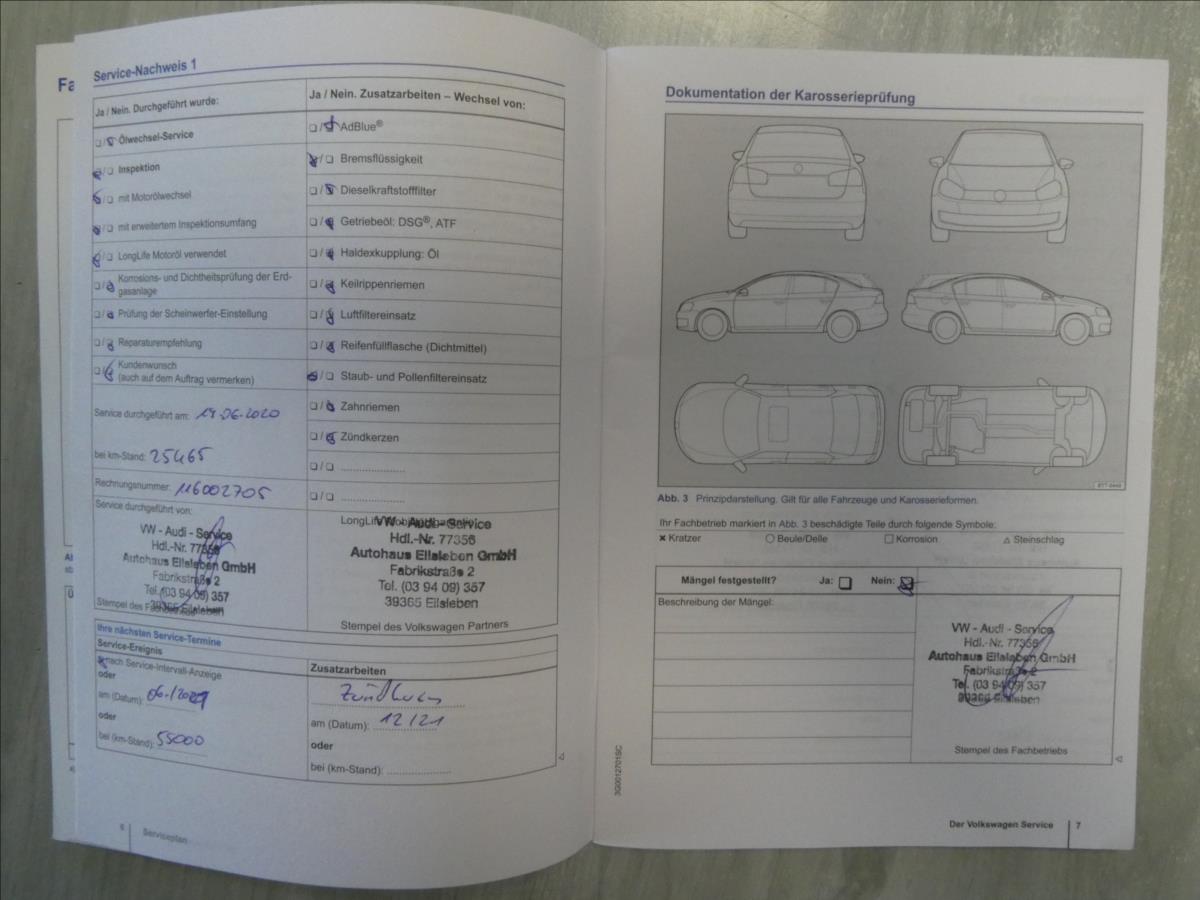 Fa
Service-Nachweis 1
Ja / Nein. Durchgeführt wurde:
❏/❏ Ölwechsel-Service
❏/❏ Inspektion
❏/❏ mit Motorölwechsel
❏/❏ mit erweitertem Inspektionsumfang
❏/❏ LongLife Motoröl verwendet
❏/❏ Korrosions- und Dichtheitsprüfung der Erd-
gasanlage
❏/❏ Prüfung der Scheinwerfer-Einstellung
❏/❏ Reparaturempfehlung
❏/❏ Kundenwunsch
(auch auf dem Auftrag vermerken)
Service durchgeführt am: 19.06.2020
bei km-Stand: 25465
Rechnungsnummer: 116002705
Service durchgeführt von:
VW - Audi - Service
Hdl.-Nr. 77356
Autohaus Eilsleben GmbH
Fabrikstraße 2
Tel. (03 94 09) 357
39365 Eilsleben
Stempel des
Ja / Nein. Zusatzarbeiten – Wechsel von:
❏/❏ AdBlue®
❏/❏ Bremsflüssigkeit
❏/❏ Dieselkraftstofffilter
❏/❏ Getriebeöl: DSG®, ATF
❏/❏ Haldexkupplung: Öl
❏/❏ Keilrippenriemen
❏/❏ Luftfiltereinsatz
❏/❏ Reifenfüllflasche (Dichtmittel)
❏/❏ Staub- und Pollenfiltereinsatz
❏/❏ Zahnriemen
❏/❏ Zündkerzen
❏/❏ ....................
❏/❏ ....................
LongLife
VW - Audi - Service
Hdl.-Nr. 77356
Autohaus Eilsleben GmbH
Fabrikstraße 2
Tel. (03 94 09) 357
39365 Eilsleben
Stempel des Volkswagen Partners
Ihre nächsten Service-Termine
Service-Ereignis
nach Service-Intervall-Anzeige
oder
am (Datum): 06/2021
oder
bei (km-Stand): 55000
Zusatzarbeiten
am (Datum): 12/21
oder
bei (km-Stand): ....................
6 Serviceplan
Dokumentation der Karosserieprüfung
Abb. 3 Prinzipdarstellung. Gilt für alle Fahrzeuge und Karosserieformen.
Ihr Fachbetrieb markiert in Abb. 3 beschädigte Teile durch folgende Symbole:
✖ Kratzer ○ Beule/Delle □ Korrosion △ Steinschlag
Mängel festgestellt? Ja: ❏ Nein: ❏
Beschreibung der Mängel:
VW - Audi - Service
Hdl.-Nr. 77356
Autohaus Eilsleben GmbH
Fabrikstraße 2
Tel. (03 94 09) 357
39365 Eilsleben
Stempel des Fachbetriebs
3G0012701SC
Der Volkswagen Service 7